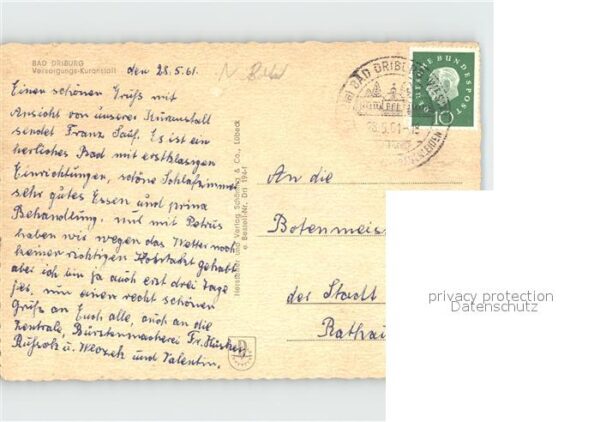 BAD DRIBURG
Versorgungs-Kuranstalt
den 28.5.61.
Einen schönen Gruß mit
Ansicht von unserer Kuranstalt
sendet Franz Sauf. Es ist ein
herliches Bad mit erstklasigen
Einrichtungen, schöne Schlafzimmer
sehr gutes Essen und prima
Behandlung, nur mit Petrus
haben wir wegen das Wetter noch
keinen richtigen gehabt
aber ich bin ja auch erst drei Tage
nun einen recht schönen
Gruß an Euch alle, auch an die
Zentrale, Bürstenmacherei Fr.
u. und Valentin.
Hersteller und Verlag Schöning & Co., Lübeck
Bestell-Nr. Dri 1941
BAD DRIBURG
DEUTSCHE BUNDESPOST
10
An die
Botenmeis
der Stadt
Rathau
privacy protection
Datenschutz